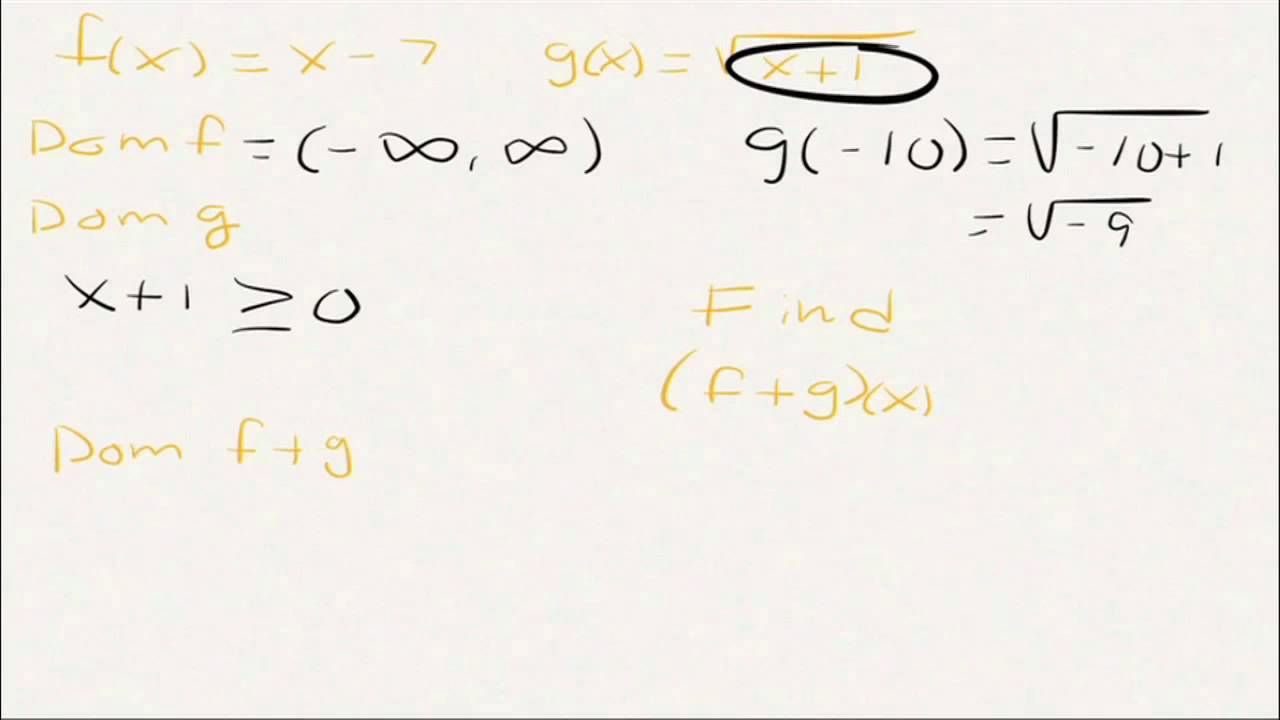 f(x) = x - 7
g(x) = √x+1
Dom f = (-∞, ∞)
g(-10) = √-10+1
= √-9
Dom g
x+1 ≥ 0
Find
(f+g)(x)
Dom f+g